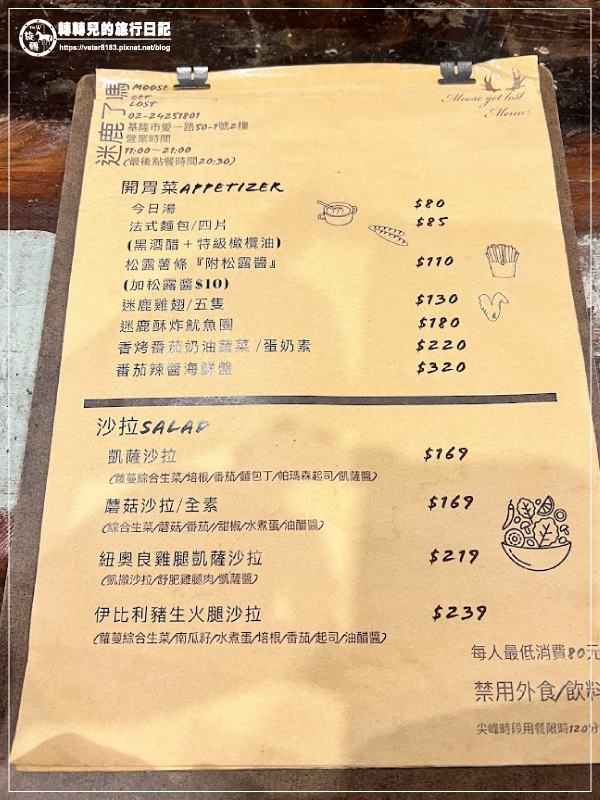 轉轉兒的旅行日記
https://veter8183.pixnet.net/blog
迷鹿了嗎
MOOSE
GET
LOST
02-24251801
基隆市愛一路50-1號2樓
營業時間
11:00~21:00
(最後點餐時間20:30)
Moose get lost
Menu
開胃菜APPETIZER
今日湯 $80
法式麵包/四片 $85
(黑酒醋+特級橄欖油)
松露薯條『附松露醬』 $110
(加松露醬$10)
迷鹿雞翅/五隻 $130
迷鹿酥炸魷魚圈 $180
香烤番茄奶油蔬菜/蛋奶素 $220
番茄辣醬海鮮盤 $320
沙拉SALAD
凱薩沙拉 $169
(蘿蔓綜合生菜/培根/番茄/麵包丁/帕瑪森起司/凱薩醬)
蘑菇沙拉/全素 $169
(綜合生菜/蘑菇/番茄/甜椒/水煮蛋/油醋醬)
紐奧良雞腿凱薩沙拉 $219
(凱撒沙拉/舒肥雞腿肉/凱薩醬)
伊比利豬生火腿沙拉 $239
(蘿蔓綜合生菜/南瓜籽/水煮蛋/培根/番茄/起司/油醋醬)
每人最低消費80元
禁用外食/飲料
尖峰時段用餐限時120分